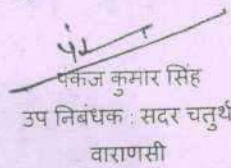 पंकज कुमार सिंह
उप निबंधक : सदर चतुर्थ
वाराणसी